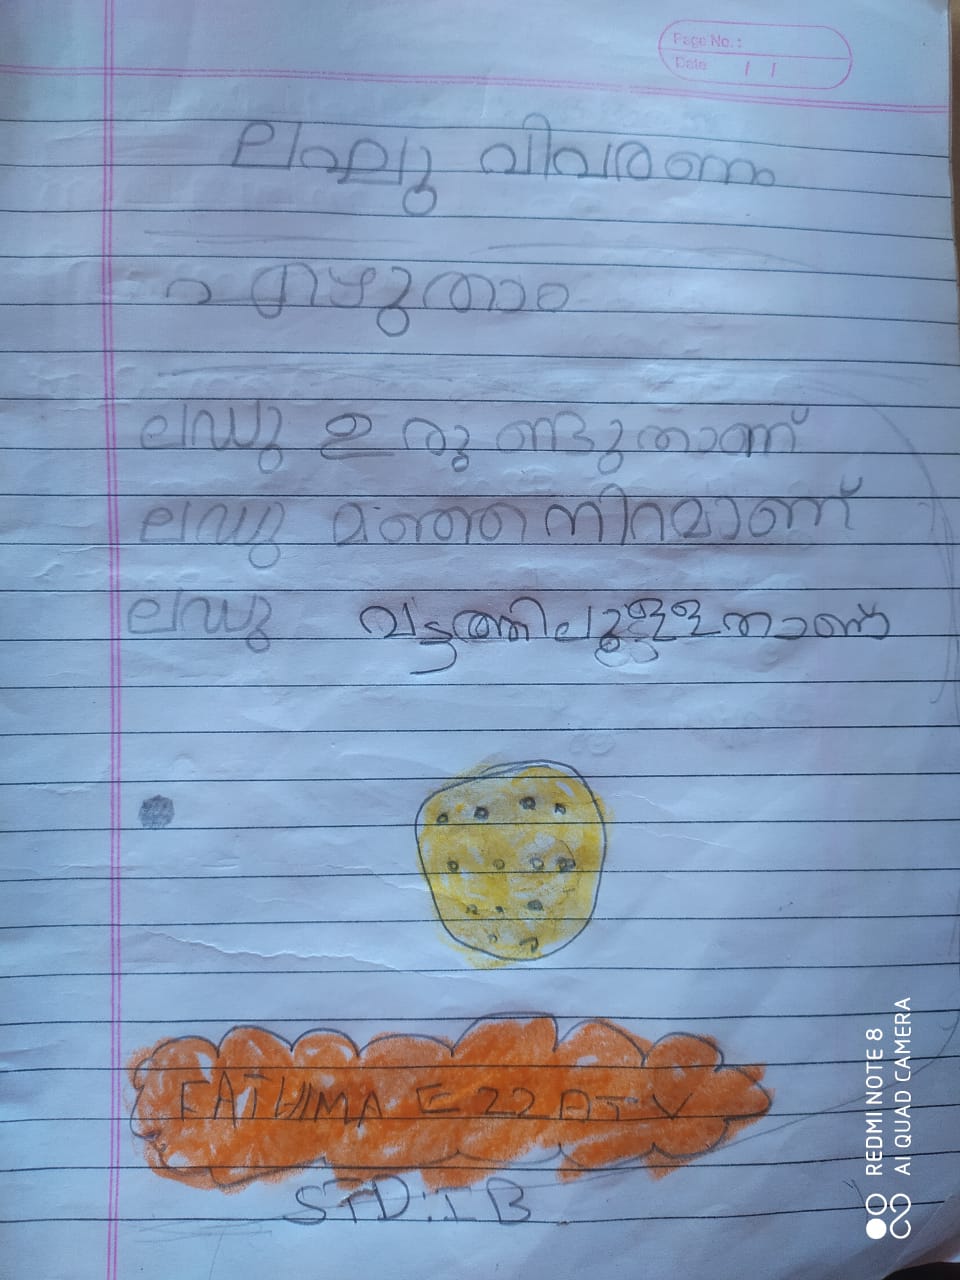 Page No.:
Date / /
ലഘു വിവരണം
എഴുതാം
ലഡു ഉരുണ്ടുതാണ്
ലഡു മഞ്ഞനിറമാണ്
ലഡു വട്ടത്തിലുള്ളതാണ്
FATHIMA E 22 
STD: I B
REDMI NOTE 8
AI QUAD CAMERA